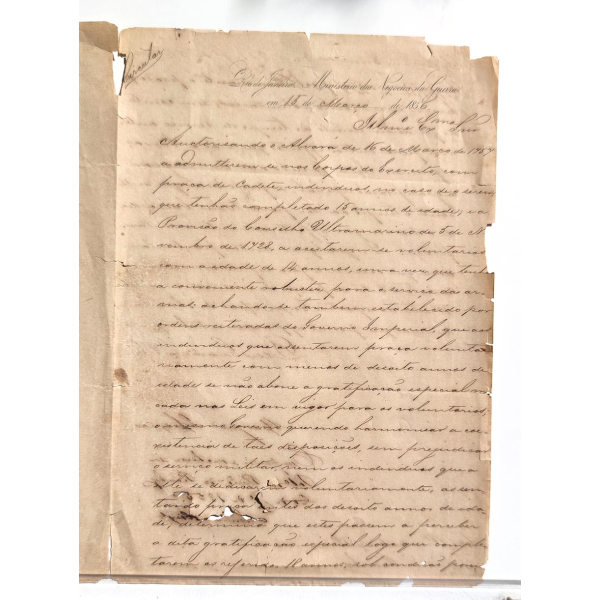 Circular
Rio de Janeiro Ministerio dos Negocios da Guerra
em 15 de Março de 1856
Illmo e Exmo Snr
Auctorisando o Alvará de 16 de Março de 1757
a admittirem-se nos Corpos do Exercito, com
praça de Cadete, individuos, no caso de o serem,
que tenhão completado 15 annos de idade, e a
Provisão do Conselho Ultramarino de 5 de N
vembro de 1728, a aceitarem-se voluntarios
com a idade de 14 annos, uma vez que tenh
a conveniente robustez para o serviço das ar
mas: achando-se tambem estabelecido por
ordens reiteradas do Governo Imperial, que aos
individuos que assentarem praça volunta
riamente com menos de desoito annos de
idade se não abone a gratificação especial m
cada nas Leis em vigor para os voluntarios,
o mesmo Governo querendo harmonisar a coe
xistencia de taes disposições, sem prejudicar
o serviço militar, nem os individuos que a
este se dedicarem voluntariamente, assen
tando praça antes dos desoito annos de ida
de, determinou que estes possem a perceber
a dita gratificação especial logo que comple
tarem os referidos 18 annos, sob condição porem